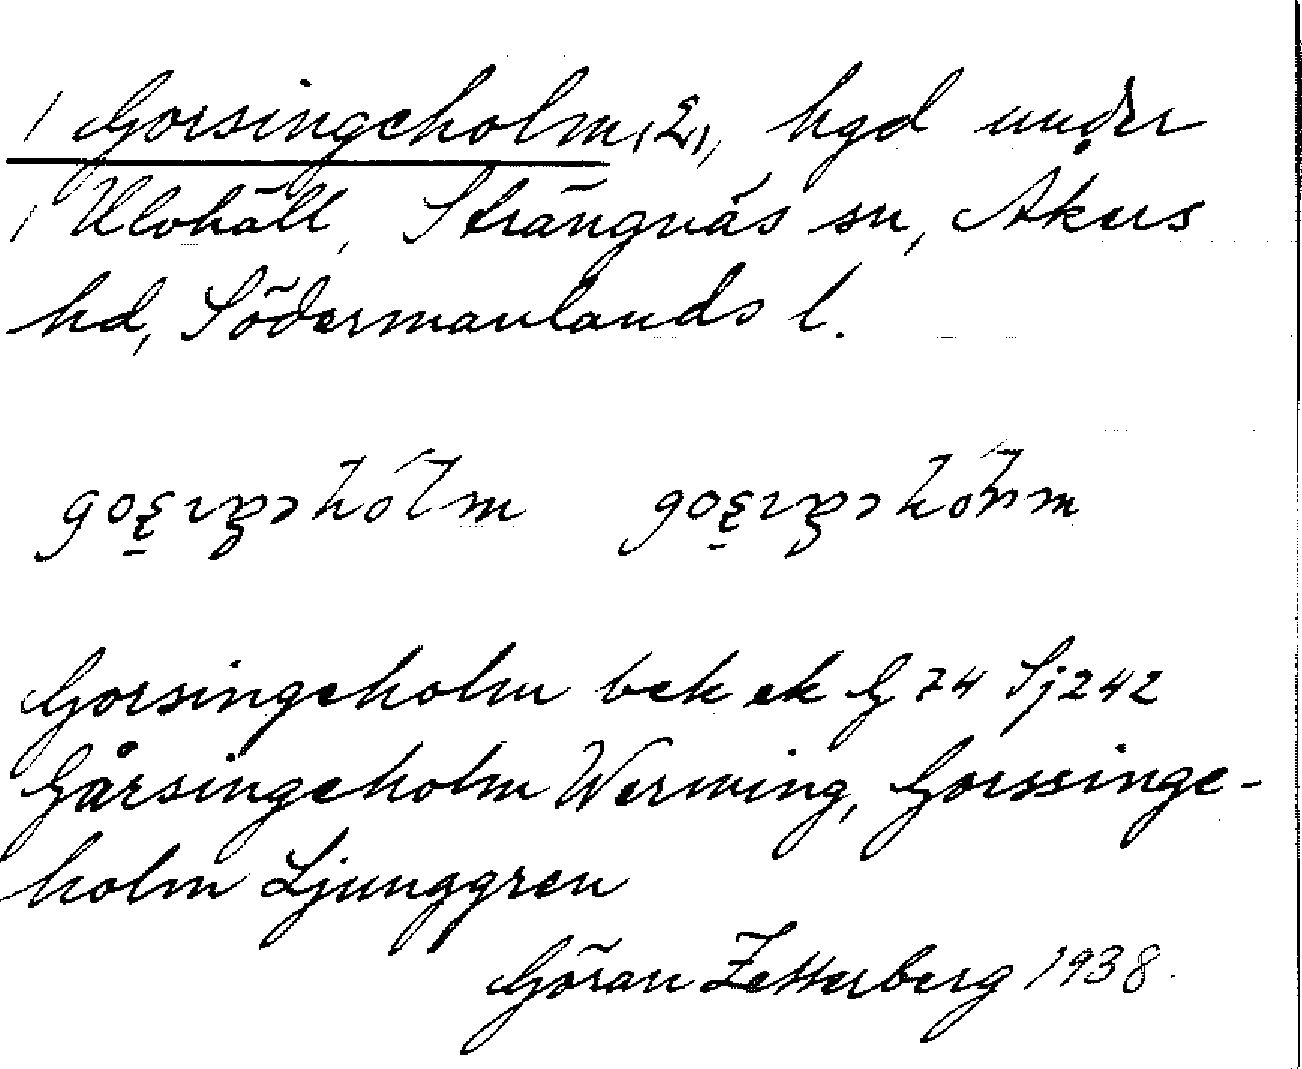 / Gorsingeholm (2), hgd under
/ Ulvhäll, Strängnäs sn, Åkers
hd, Södermanlands l.
Gorsingeholm bek ek G 74 Sj 242
Gårsingeholm Werming, Gorssinge-
holm Ljunggren
Göran Zetterberg 1938.